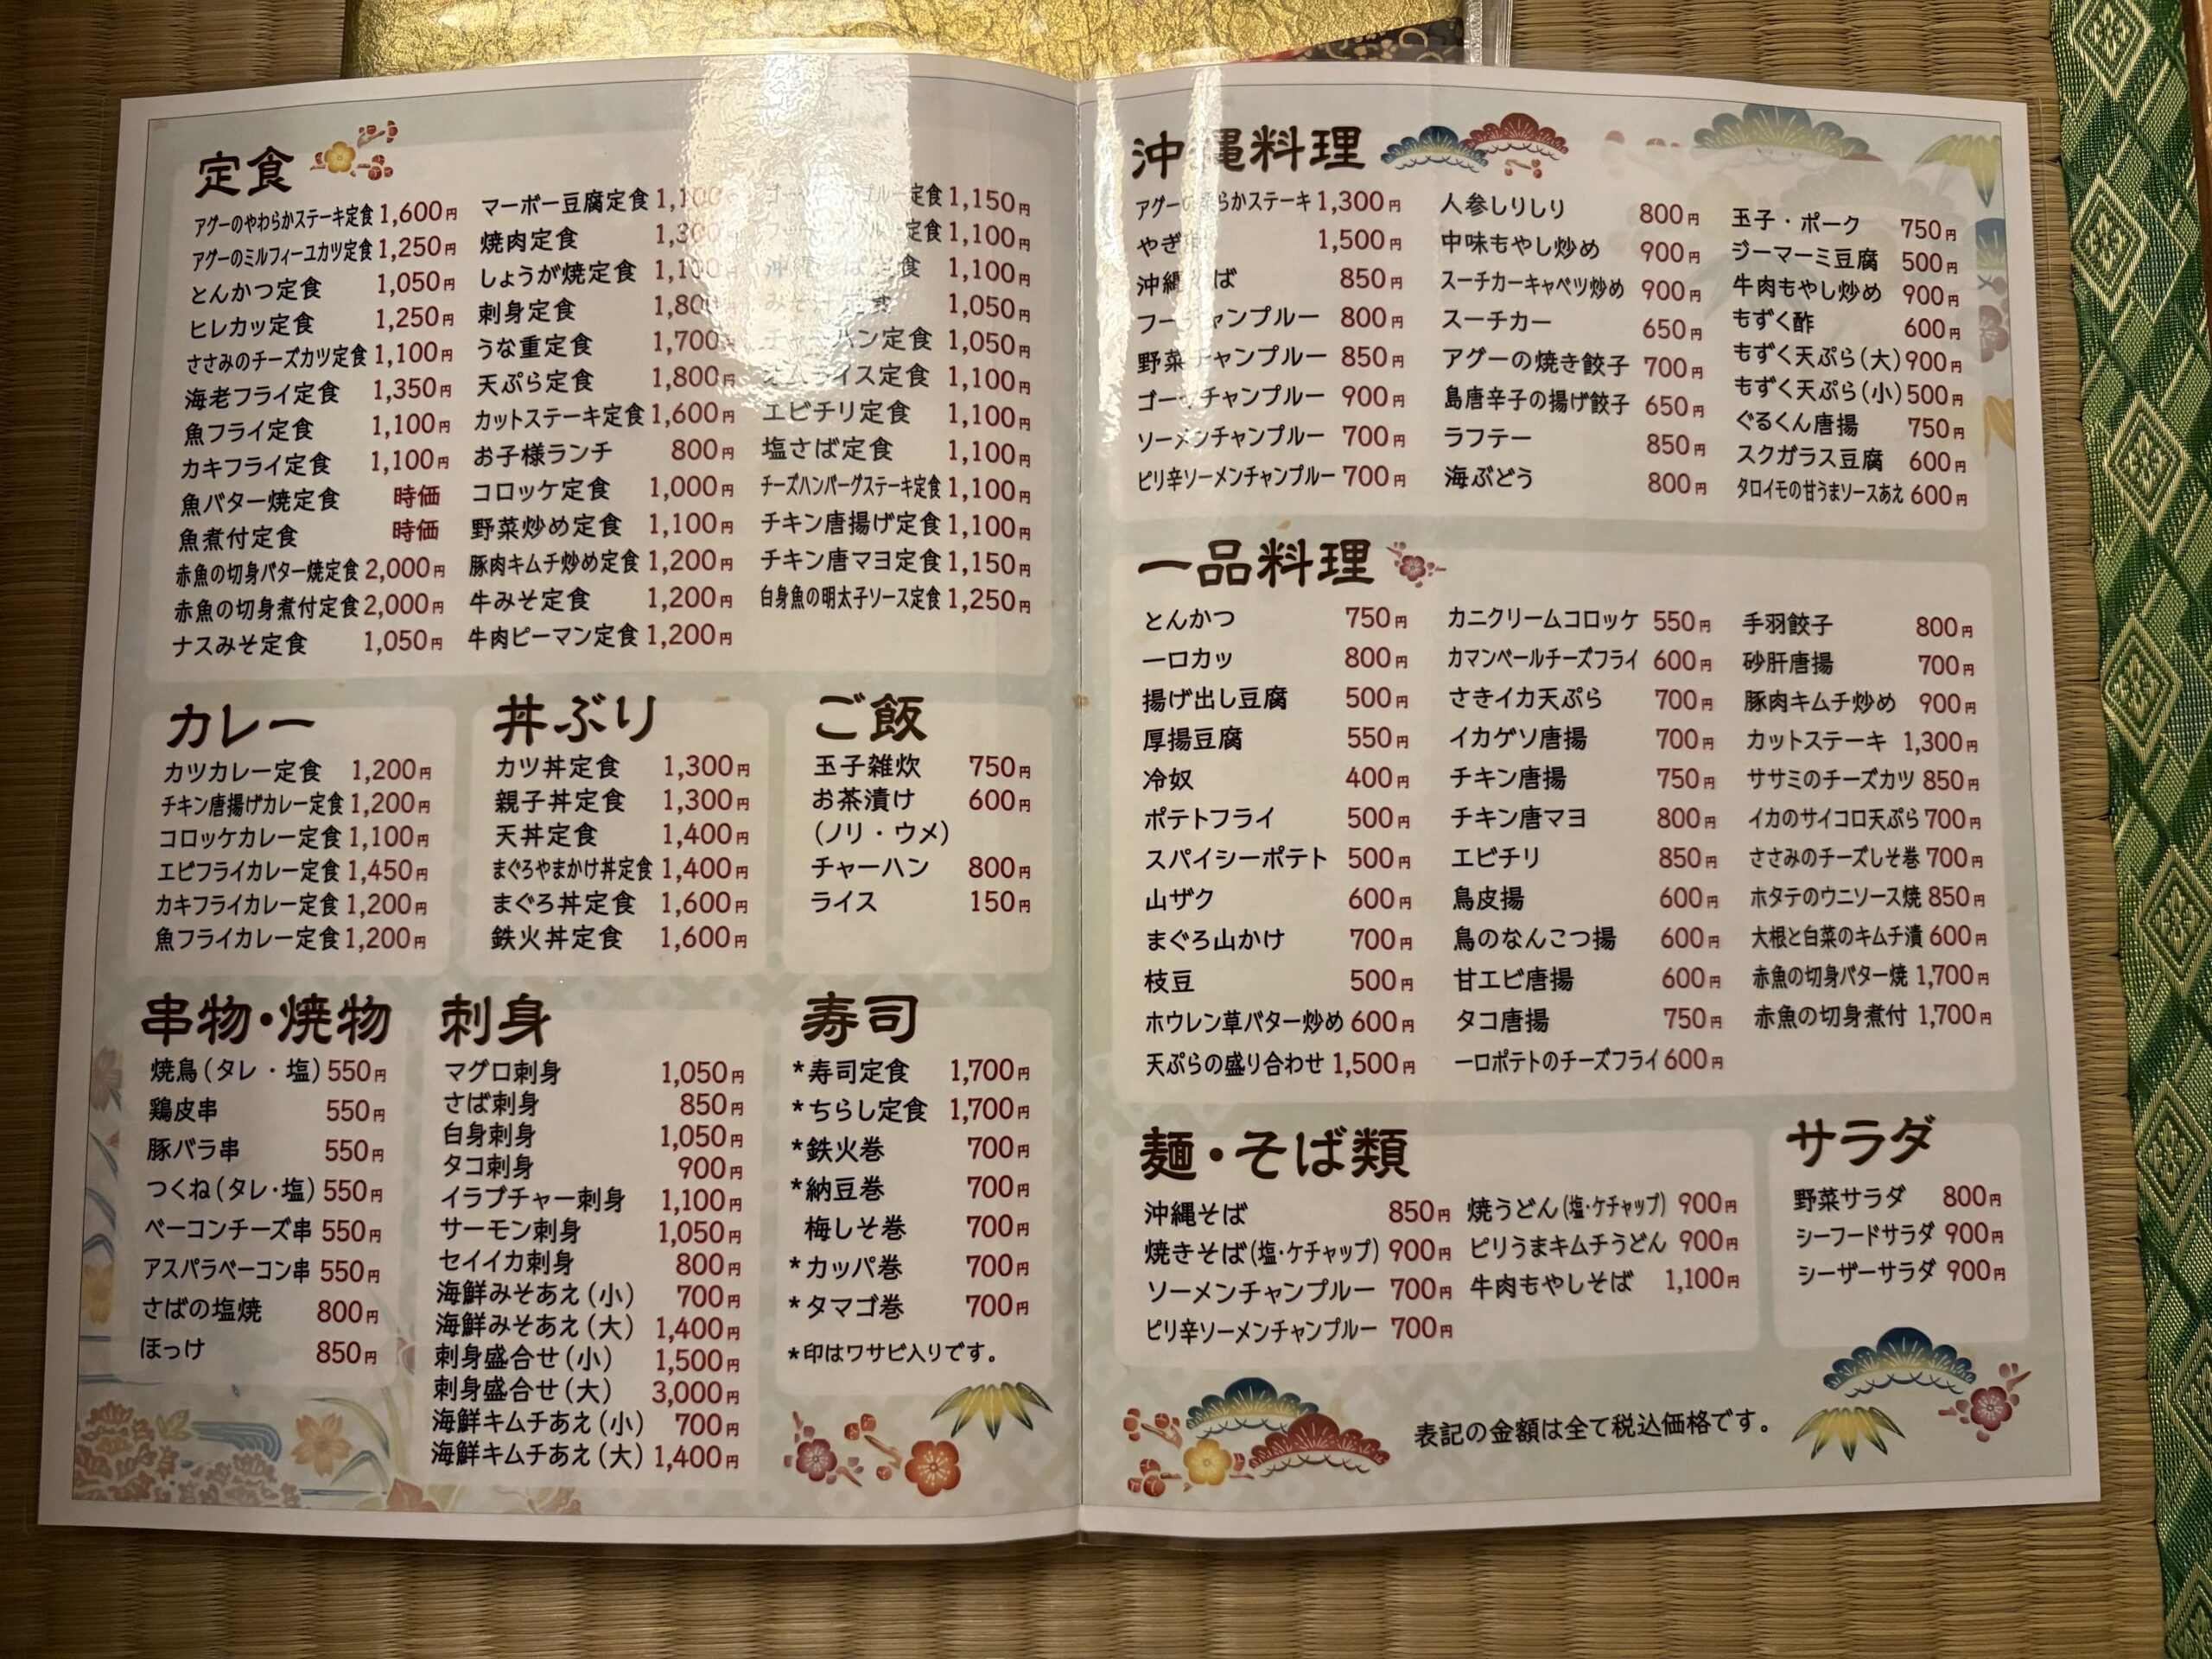 定食
アグーのやわらかステーキ定食 1,600円
アグーのミルフィーユカツ定食 1,250円
とんかつ定食 1,050円
ヒレカツ定食 1,250円
ささみのチーズカツ定食 1,100円
海老フライ定食 1,350円
魚フライ定食 1,100円
カキフライ定食 1,100円
魚バター焼定食 時価
魚煮付定食 時価
赤魚の切身バター焼定食 2,000円
赤魚の切身煮付定食 2,000円
ナスみそ定食 1,050円
マーボー豆腐定食 1,100
焼肉定食 1,300
しょうが焼定食 1,100
刺身定食 1,800
うな重定食 1,700
天ぷら定食 1,800円
カットステーキ定食 1,600円
お子様ランチ 800円
コロッケ定食 1,000円
野菜炒め定食 1,100円
豚肉キムチ炒め定食 1,200円
牛みそ定食 1,200円
牛肉ピーマン定食 1,200円
定食 1,150円
定食 1,100円
定食 1,100円
1,050円
チャーハン定食 1,050円
オムライス定食 1,100円
エビチリ定食 1,100円
塩さば定食 1,100円
チーズハンバーグステーキ定食 1,100円
チキン唐揚げ定食 1,100円
チキン唐マヨ定食 1,150円
白身魚の明太子ソース定食 1,250円
カレー
カツカレー定食 1,200円
チキン唐揚げカレー定食 1,200円
コロッケカレー定食 1,100円
エビフライカレー定食 1,450円
カキフライカレー定食 1,200円
魚フライカレー定食 1,200円
丼ぶり
カツ丼定食 1,300円
親子丼定食 1,300円
天丼定食 1,400円
まぐろやまかけ丼定食 1,400円
まぐろ丼定食 1,600円
鉄火丼定食 1,600円
ご飯
玉子雑炊 750円
お茶漬け 600円
(ノリ・ウメ)
チャーハン 800円
ライス 150円
串物・焼物
焼鳥(タレ・塩) 550円
鶏皮串 550円
豚バラ串 550円
つくね(タレ・塩) 550円
ベーコンチーズ串 550円
アスパラベーコン串 550円
さばの塩焼 800円
ほっけ 850円
刺身
マグロ刺身 1,050円
さば刺身 850円
白身刺身 1,050円
タコ刺身 900円
イラブチャー刺身 1,100円
サーモン刺身 1,050円
セイイカ刺身 800円
海鮮みそあえ(小) 700円
海鮮みそあえ(大) 1,400円
刺身盛合せ(小) 1,500円
刺身盛合せ(大) 3,000円
海鮮キムチあえ(小) 700円
海鮮キムチあえ(大) 1,400円
寿司
*寿司定食 1,700円
*ちらし定食 1,700円
*鉄火巻 700円
*納豆巻 700円
梅しそ巻 700円
*カッパ巻 700円
*タマゴ巻 700円
*印はワサビ入りです。
沖縄料理
アグーの柔らかステーキ 1,300円
やぎ 1,500円
沖縄そば 850円
フーチャンプルー 800円
野菜チャンプルー 850円
ゴーヤチャンプルー 900円
ソーメンチャンプルー 700円
ピリ辛ソーメンチャンプルー 700円
人参しりしり 800円
中味もやし炒め 900円
スーチカーキャベツ炒め 900円
スーチカー 650円
アグーの焼き餃子 700円
島唐辛子の揚げ餃子 650円
ラフテー 850円
海ぶどう 800円
玉子・ポーク 750円
ジーマーミ豆腐 500円
牛肉もやし炒め 900円
もずく酢 600円
もずく天ぷら(大) 900円
もずく天ぷら(小) 500円
ぐるくん唐揚 750円
スクガラス豆腐 600円
タロイモの甘うまソースあえ 600円
一品料理
とんかつ 750円
一口カツ 800円
揚げ出し豆腐 500円
厚揚豆腐 550円
冷奴 400円
ポテトフライ 500円
スパイシーポテト 500円
山ザク 600円
まぐろ山かけ 700円
枝豆 500円
ホウレン草バター炒め 600円
天ぷらの盛り合わせ 1,500円
カニクリームコロッケ 550円
カマンベールチーズフライ 600円
さきイカ天ぷら 700円
イカゲソ唐揚 700円
チキン唐揚 750円
チキン唐マヨ 800円
エビチリ 850円
鳥皮揚 600円
鳥のなんこつ揚 600円
甘エビ唐揚 600円
タコ唐揚 750円
一口ポテトのチーズフライ 600円
手羽餃子 800円
砂肝唐揚 700円
豚肉キムチ炒め 900円
カットステーキ 1,300円
ササミのチーズカツ 850円
イカのサイコロ天ぷら 700円
ささみのチーズしそ巻 700円
ホタテのウニソース焼 850円
大根と白菜のキムチ漬 600円
赤魚の切身バター焼 1,700円
赤魚の切身煮付 1,700円
麺・そば類
沖縄そば 850円
焼きそば(塩・ケチャップ) 900円
ソーメンチャンプルー 700円
ピリ辛ソーメンチャンプルー 700円
焼うどん(塩・ケチャップ) 900円
ピリうまキムチうどん 900円
牛肉もやしそば 1,100円
サラダ
野菜サラダ 800円
シーフードサラダ 900円
シーザーサラダ 900円
表記の金額は全て税込価格です。